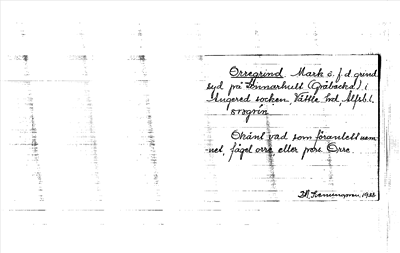 Orregrind. Mark o. f.d. grind
syd på Gunnarhult (Gråbacka) i
Angered socken, Vättle hd, Älfsb. l.
orəgrin
Okänt vad som föranlett nam-
net, fågel orre eller pers. Orre.
1922